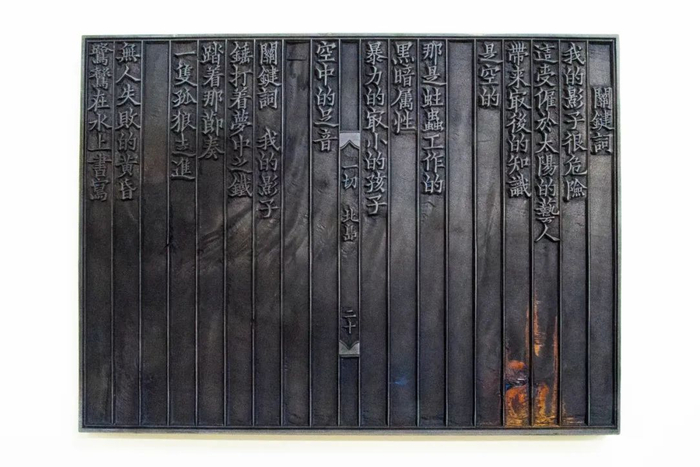 關鍵詞
我的影子很危險
這受僱於太陽的藝人
帶来冣後的知識
是空的
那是蛀蟲工作的
黑暗属性
暴力的冣小的孩子
一切 北島 二十
空中的足音
關鍵詞 我的影子
錘打着夢中之鐵
踏着那節奏
一隻孤狼走進
無人失敗的黄昏
鷺鷥在水上書寫